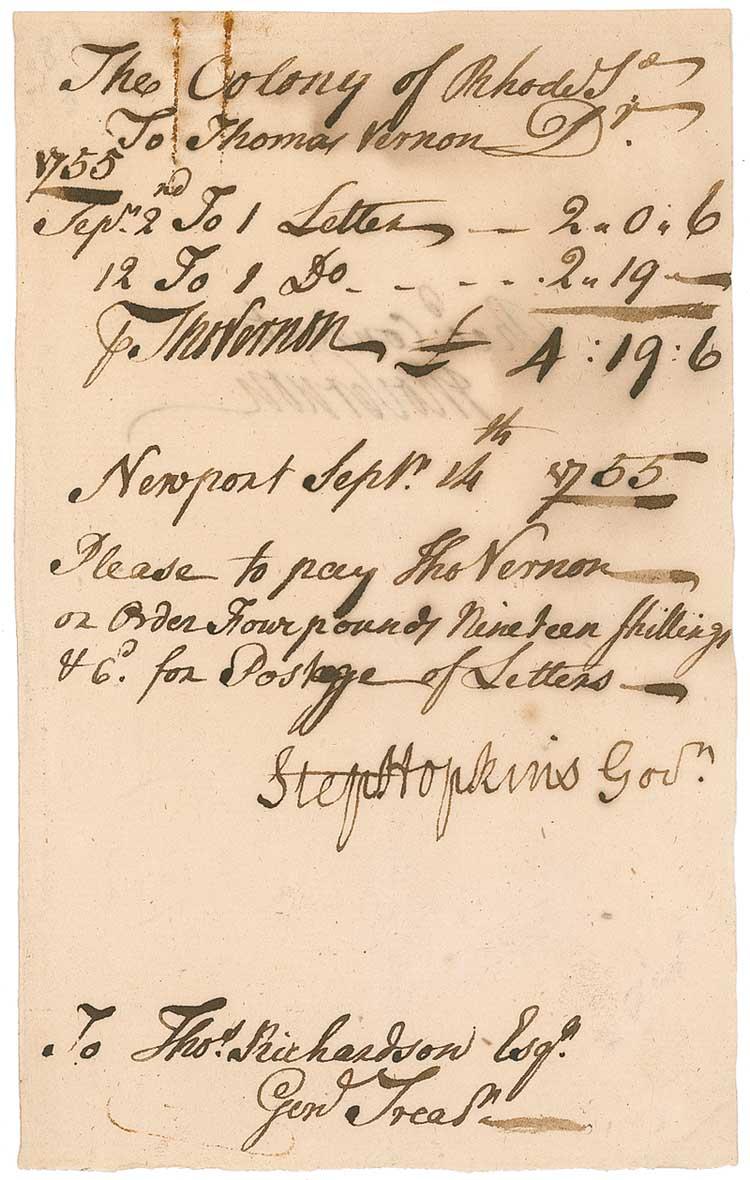 The Colony of Rhode Isd
To Thomas Vernon Dr.
1755
Sepr. 2nd To 1 Letter — 2 " 0 " 6
12 To 1 Do - - - - 2 " 19 —
p Tho Vernon £ 4 : 19 : 6
Newport Septr. 14th 1755
Please to pay Tho Vernon
or Order Four pounds Nineteen shillings
& 6d. for Postage of Letters —
Step Hopkins Govr.
To Thos. Richardson Esqr.
Genl Treasr.